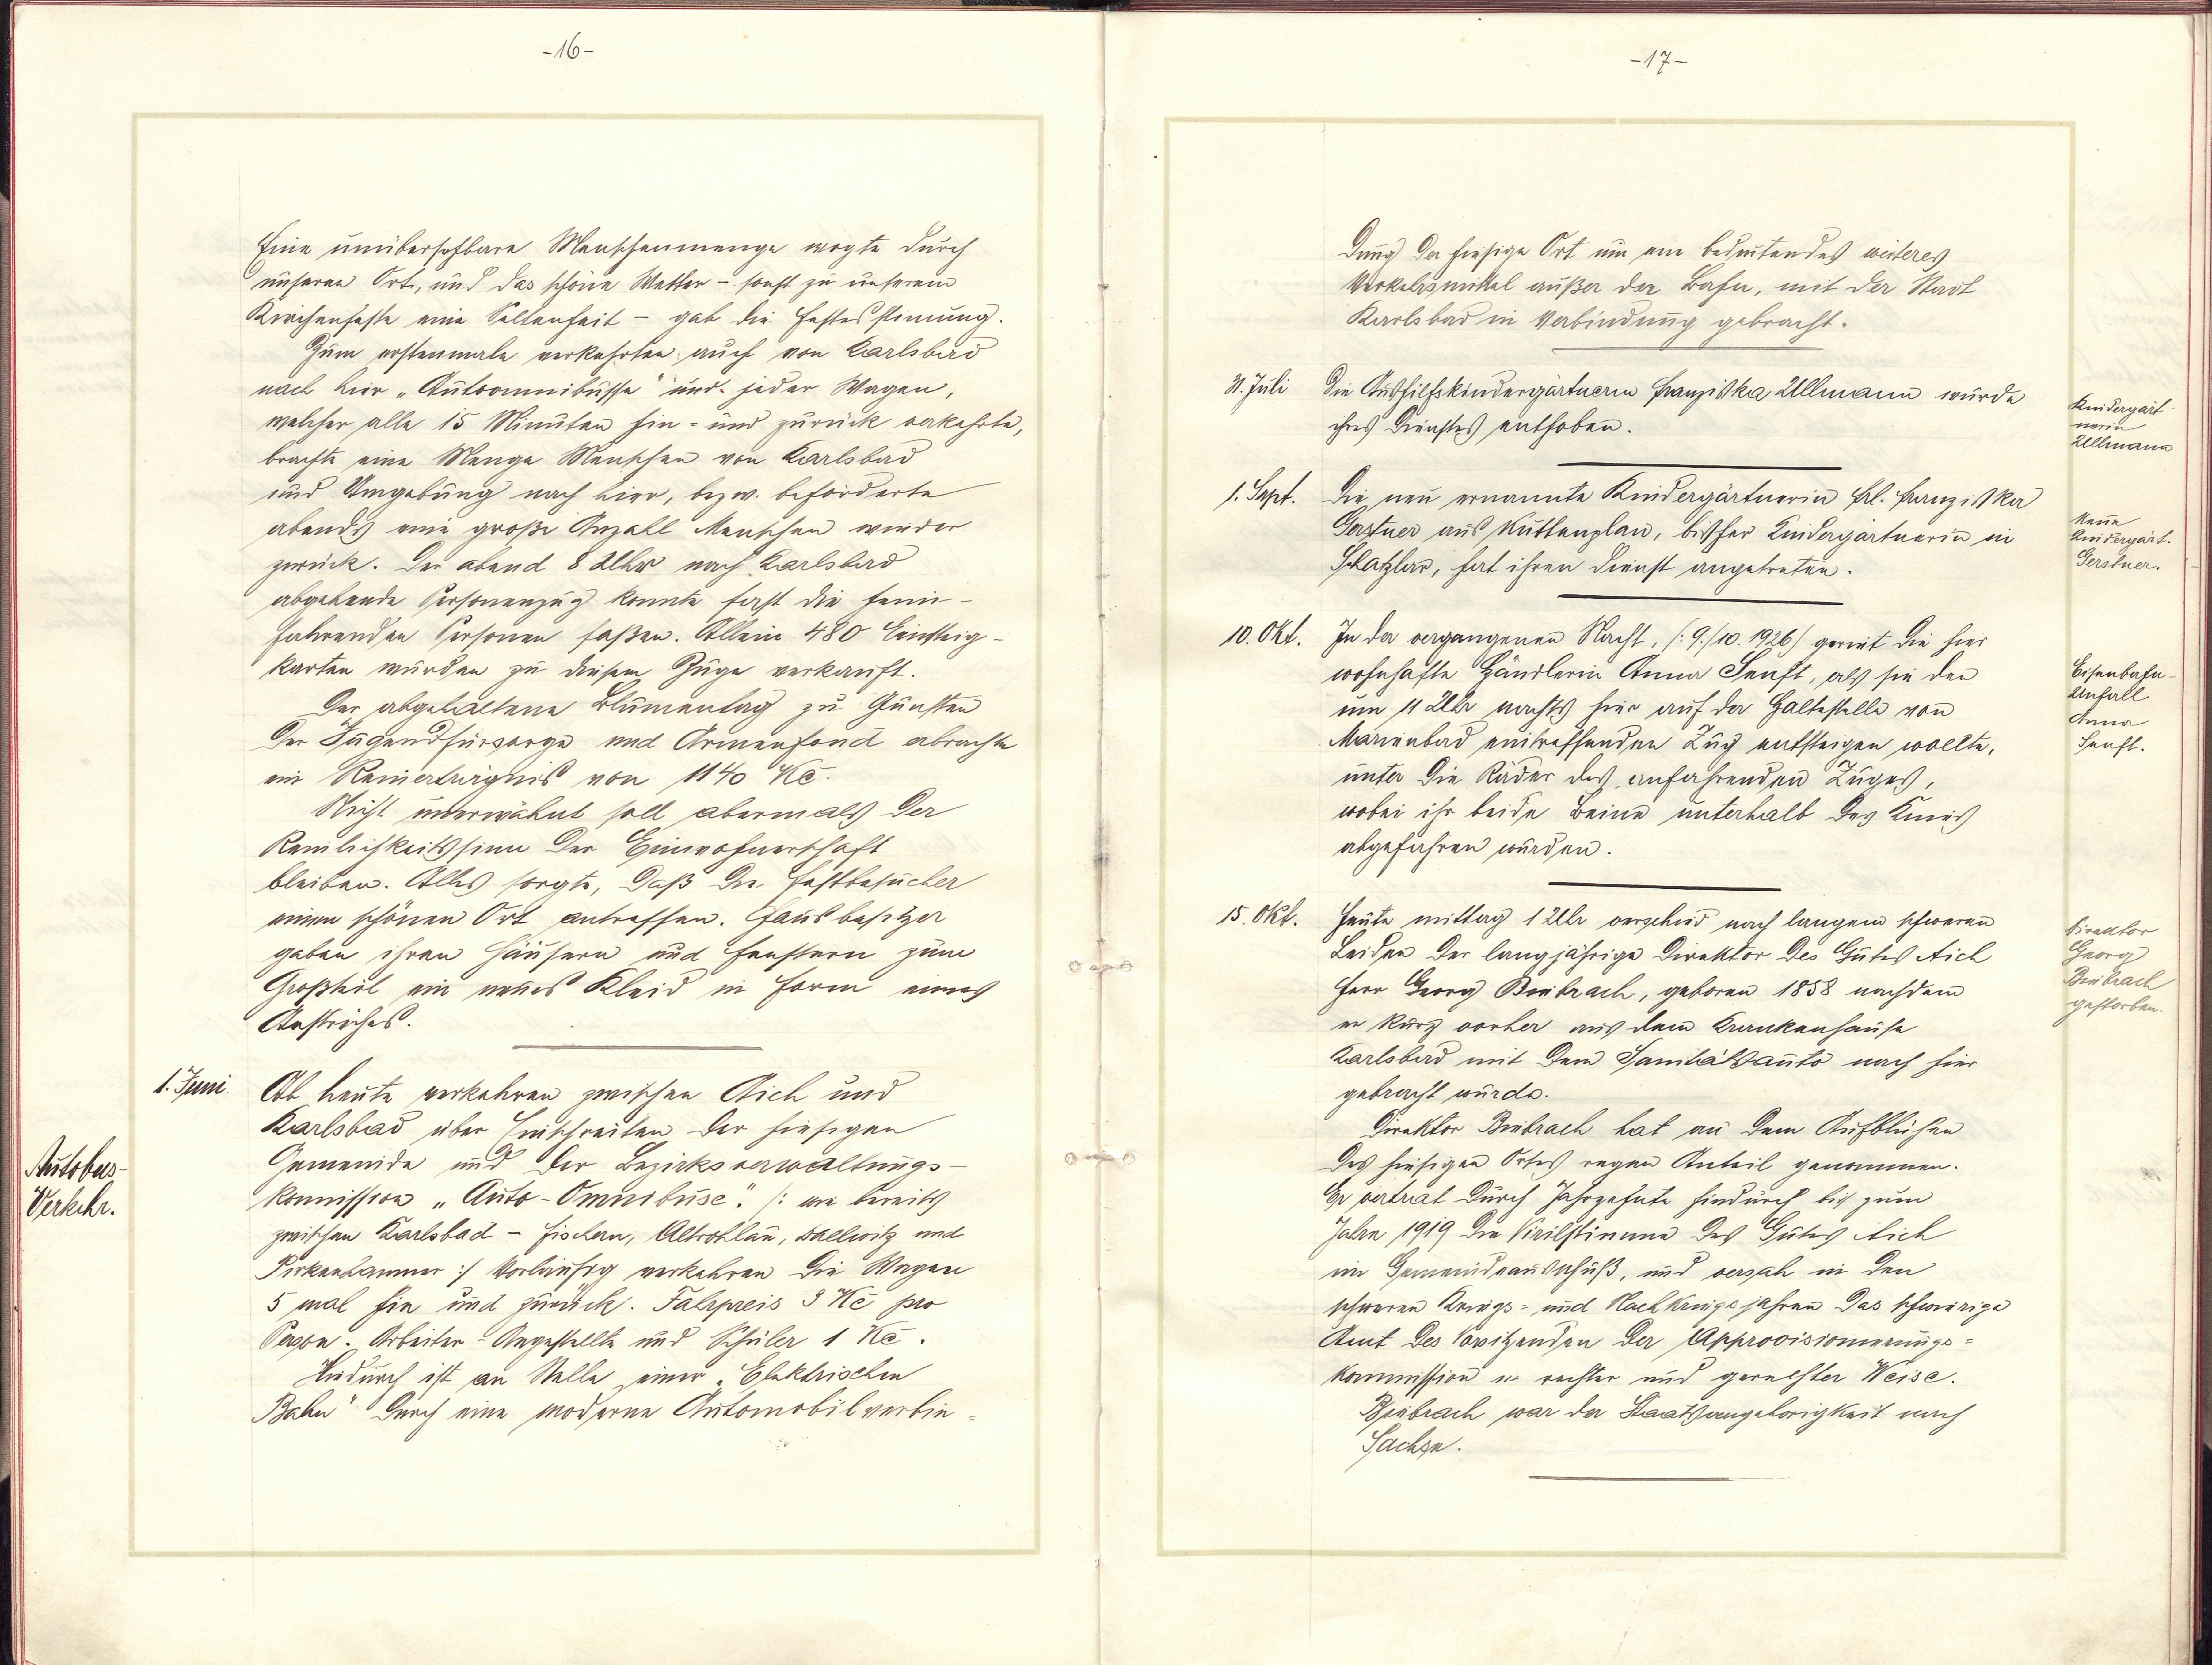 -16-
Eine unübersehbare Menschenmenge wogte durch
unseren Ort, und das schöne Wetter - sonst zu unserem
Kirchenfeste eine Seltenheit - gab die Festesstimung.
Zum erstenmale verkehrten auch von Karlsbad
nach hier „Autoomnibusse" und jeder Wagen,
welcher alle 15 Minuten hin- und zurück verkehrte,
brachte eine Menge Menschen von Karlsbad
und Umgebung nach hier, bezw. beförderte
abends eine große Anzahl Menschen wieder
zurück. Der abend 8 Uhr nach Karlsbad
abgehende Personenzug konnte fast die heim-
fahrenden Personen faßen. Allein 480 Einsteig-
karten wurden zu diesem Zuge verkauft.
Der abgehaltene Blumentag zu Gunsten
der Jugendfürsorge und Armenfond erbrachte
ein Reinerträgnis von 1140 Kč.
Nicht unerwähnt soll abermals der
Reinlichkeitssinn der Einwohnerschaft
bleiben. Alles sorgte, daß die Festbesucher
einen schönen Ort antreffen. Hausbesitzer
gaben ihren Häusern und Fenstern zum
Großteil ein neues Kleid in Form eines
Anstriches.
1. Juni.
Ab heute verkehren zwischen Aich und
Karlsbad über Einschreiten der hiesigen
Gemeinde und der Bezirksverwaltungs-
kommission „Auto-Omnibuse". /: wie bereits
zwischen Karlsbad - Fischern, Altrohlau, Dallwitz und
Pirkenhammer :/ Vorläufig verkehren die Wagen
5 mal hin und zurück. Fahrpreis 3 Kč pro
Person. Arbeiter-Angestellte und Schüler 1 Kč.
Hiedurch ist an Stelle einer „Elektrischen
Bahn" durch eine moderne Automobilverbin-
Autobus-
Verkehr.
-17-
dung der hiesige Ort um ein bedeutendes weiteres
Verkehrsmittel außer der Bahn, mit der Stadt
Karlsbad in Verbindung gebracht.
31. Juli
Die Aushilfskindergärtnerin Franziska Ullmann wurde
ihres Dienstes enthoben.
Kindergärt
nerin
Ullmann
1. Sept.
Die neu ernannte Kindergärtnerin Frl. Franziska
Gerstner aus Kuttenplan, bisher Kindergärtnerin in
Schatzlar, hat ihren Dienst angetreten.
Neue
Kindergärt.
Gerstner.
10. Okt.
In der vergangenen Nacht, /: 9./10. 1926/ geriet die hier
wohnhafte Händlerin Anna Senft, als sie den
um 11 Uhr nachts hier auf der Haltestelle von
Marienbad eintreffenden Zug entsteigen wollte,
unter die Räder des anfahrenden Zuges,
wobei ihr beide Beine unterhalb des Knies
abgefahren wurden.
Eisenbahn-
Unfall
Anna
Senft.
15. Okt.
Heute mittag 1 Uhr verschied nach langem schweren
Leiden der langjährige Direktor des Gutes Aich
Herr Georg Biebrach, geboren 1858 nachdem
er kurz vorher aus dem Krankenhause
Karlsbad mit dem Sanitätsauto nach hier
gebracht wurde.
Direktor Biebrach hat an dem Aufblühen
des hiesigen Ortes regen Anteil genommen.
Er vertrat durch Jahrzehnte hindurch bis zum
Jahre 1919 die Virilstimme des Gutes Aich
im Gemeindeausschuß, und versah in den
schweren Kriegs- und Nachkriegsjahren das schwierige
Amt des Vorsitzenden der Approvisionierungs-
kommission in rechter und gerechter Weise.
Biebrach war der Staatsangehörigkeit nach
Sachse.
Direktor
Georg
Biebrach
gestorben.